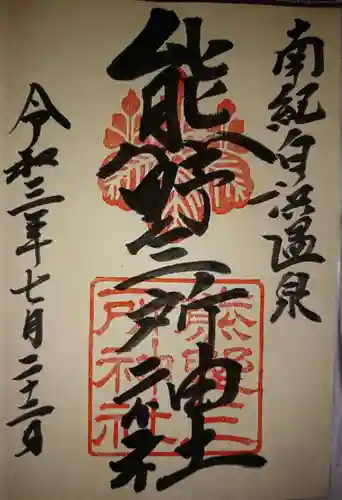 南紀白浜温泉
能野三所神社
令和三年七月二十二日
熊野三
所神社